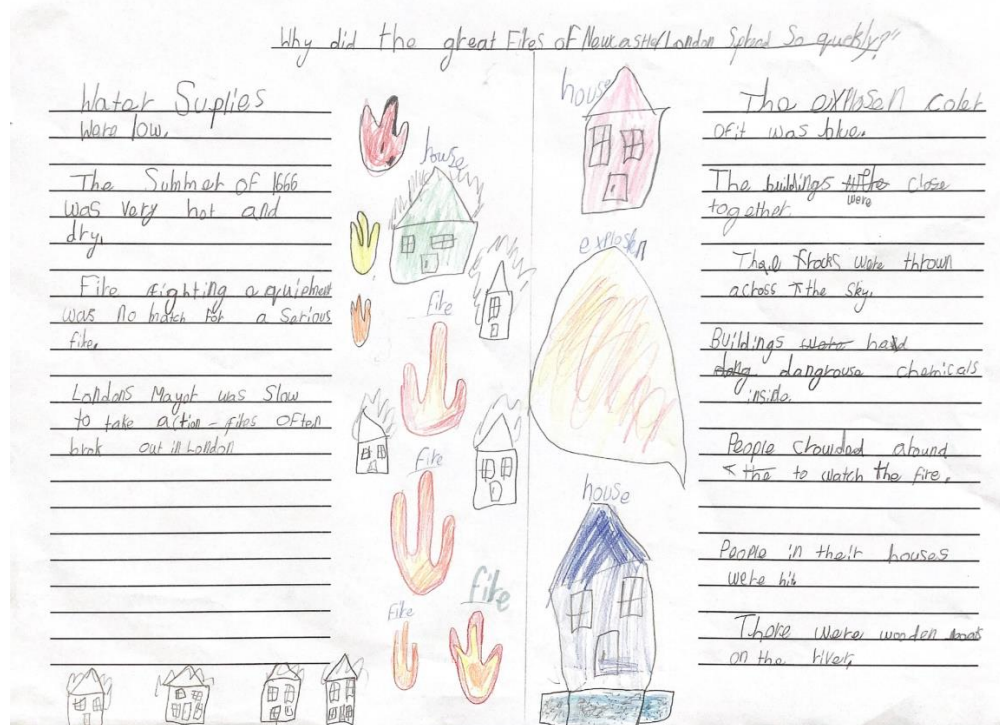 Why did the great Fires of Newcastle/London Spread So quckly?"
Water Suplies
Were low.
The Summer of 1666
was very hot and
dry.
Fire fighting equipment
was no match for a Serious
fire.
Londons Mayor was Slow
to take action - fires often
brok out in London
house
fire
fire
fire
fire
house
explosen
house
The explosen coler
of it was blue.
The buildings were close
together.
were thrown
across the sky.
Buildings were had
dangrouse chemicals
inside.
People crowded around
the to watch the fire.
People in their houses
were hit
There were wooden boats
on the river.